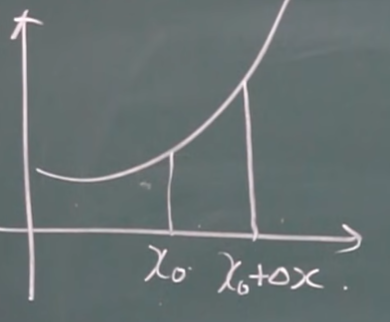 x₀ x₀+Δx.